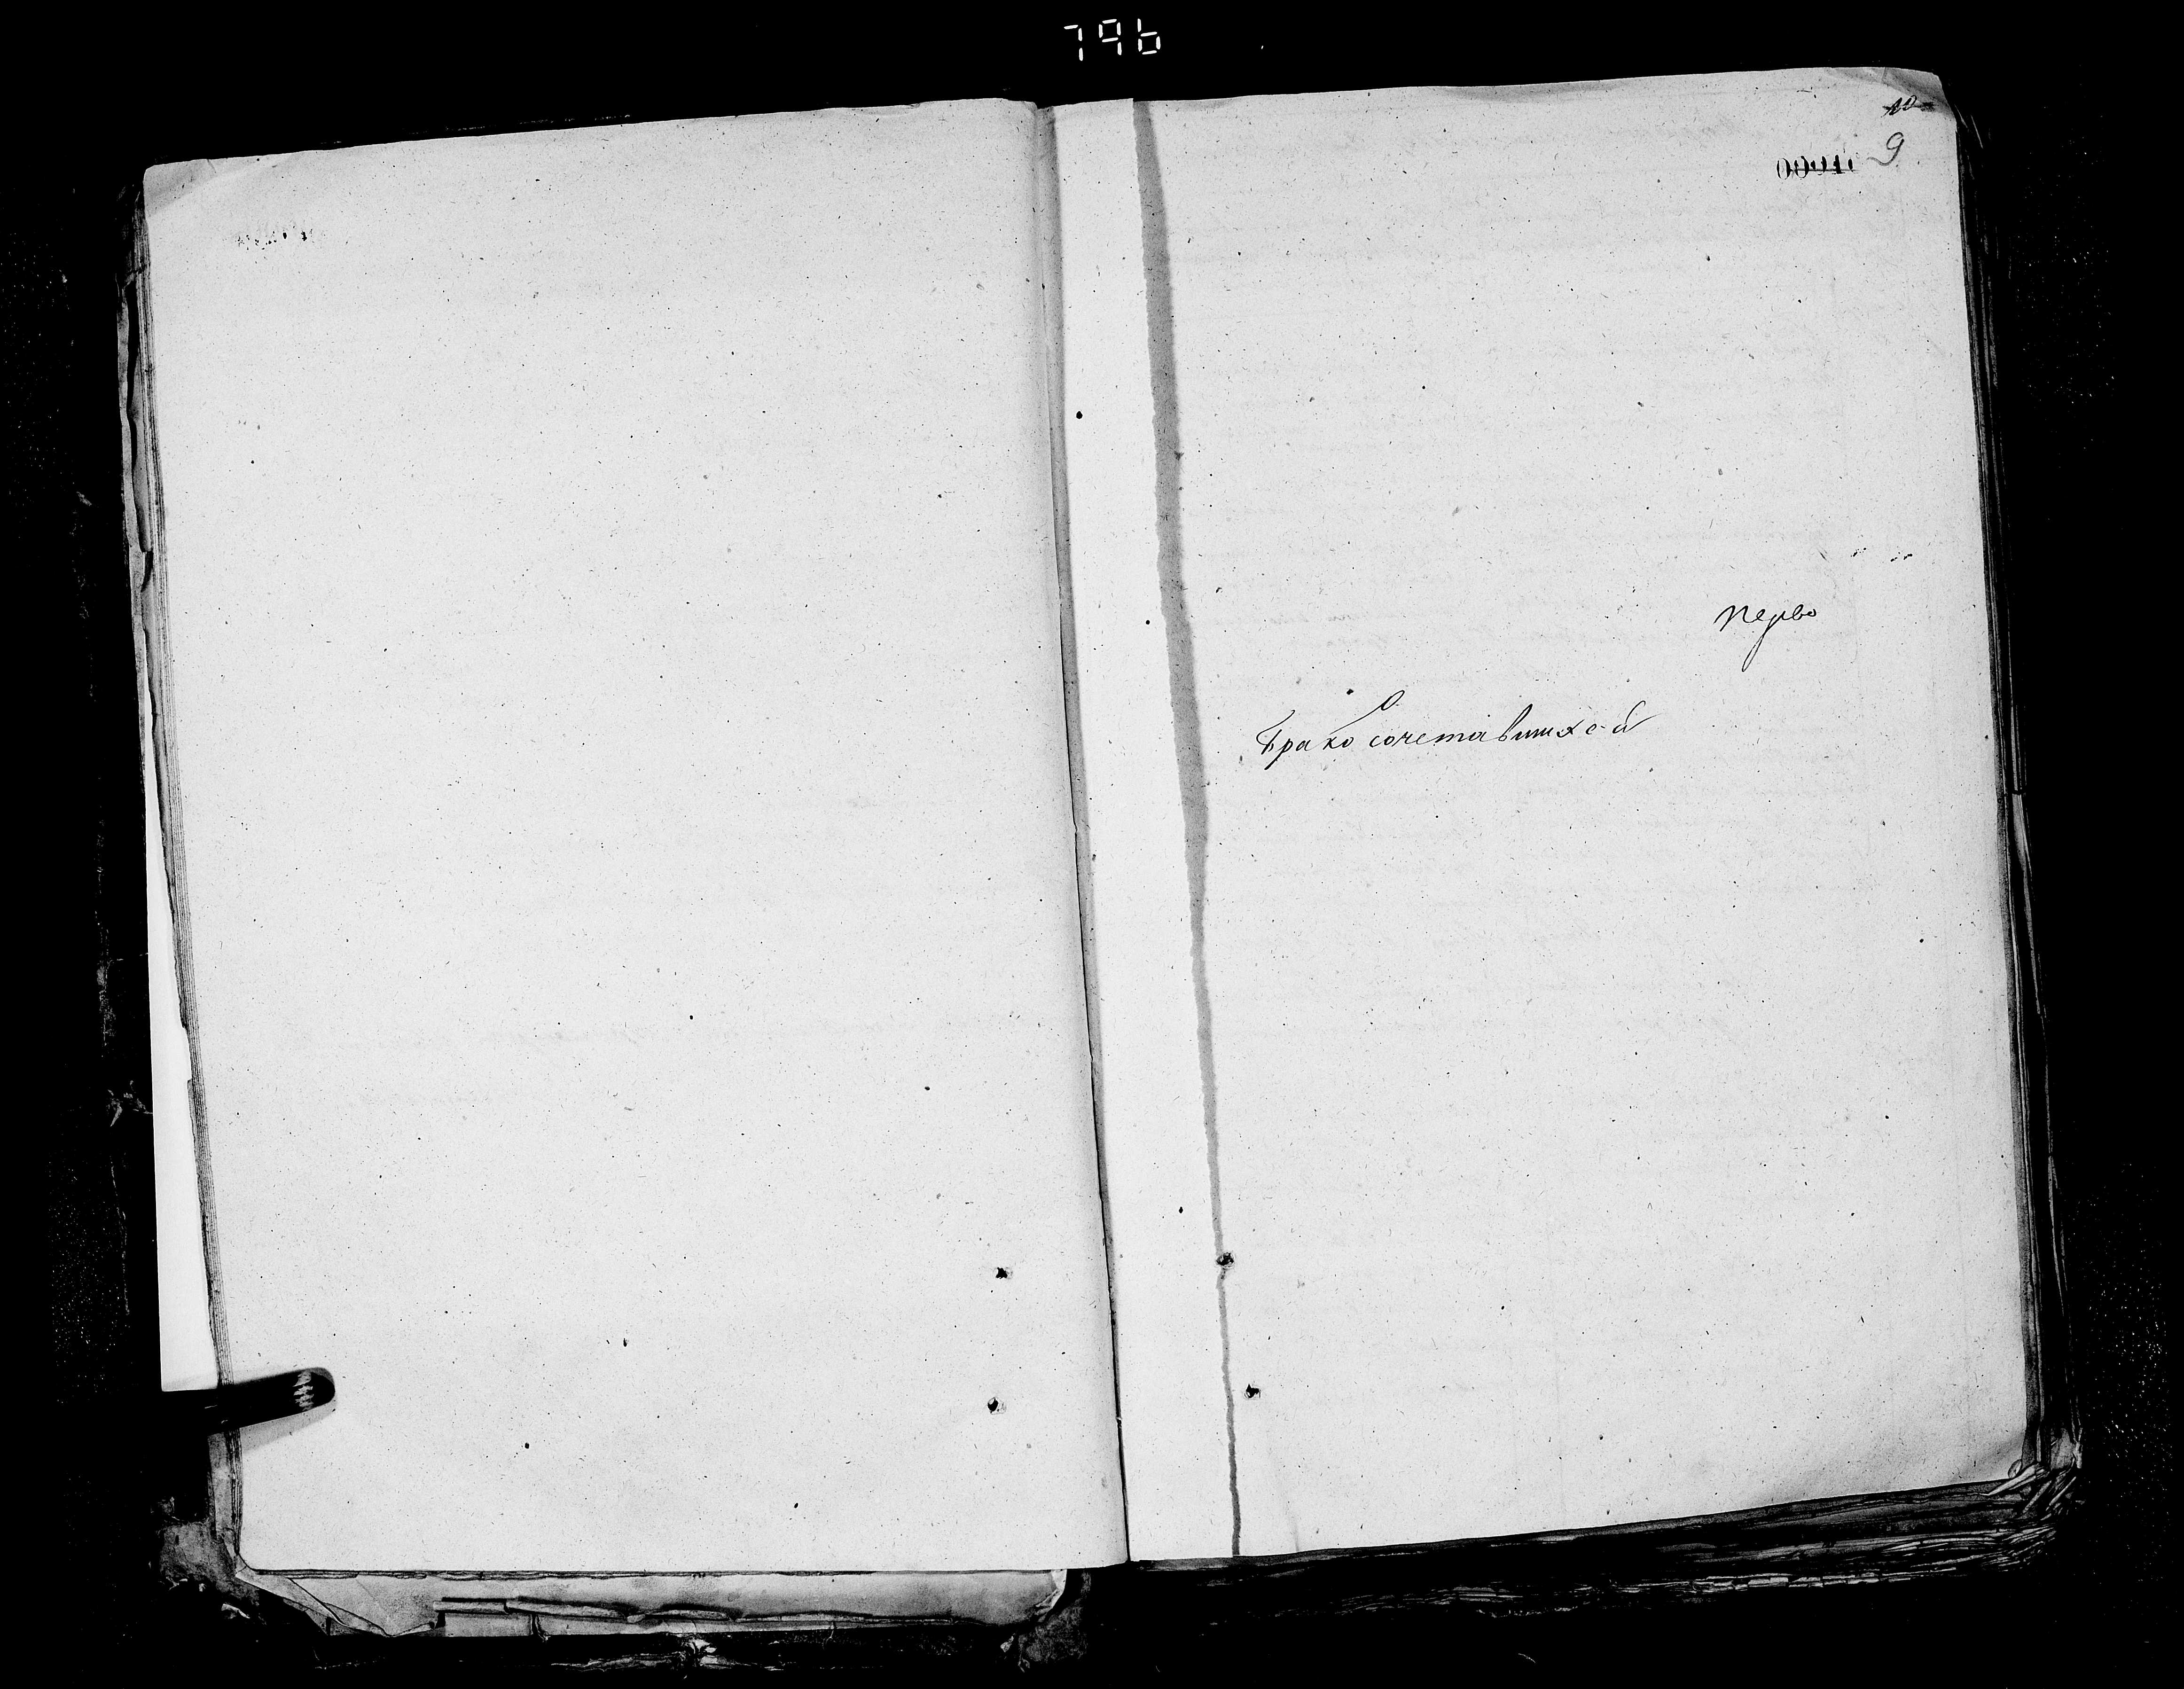 796
10
9
перво
О
Бракосочетавшихся